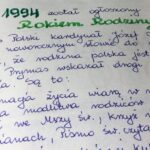 1994 został ogłoszony
Rokiem Rodziny
Polski kandydat Józef
noworocznym słowie do
, że rodzina polska jest
Prymas wskazał drogę
są to:
maga życia wiarą w
modlitwa rodziców
we Mszy św., krzyż
ianach, Pismo św. czyta